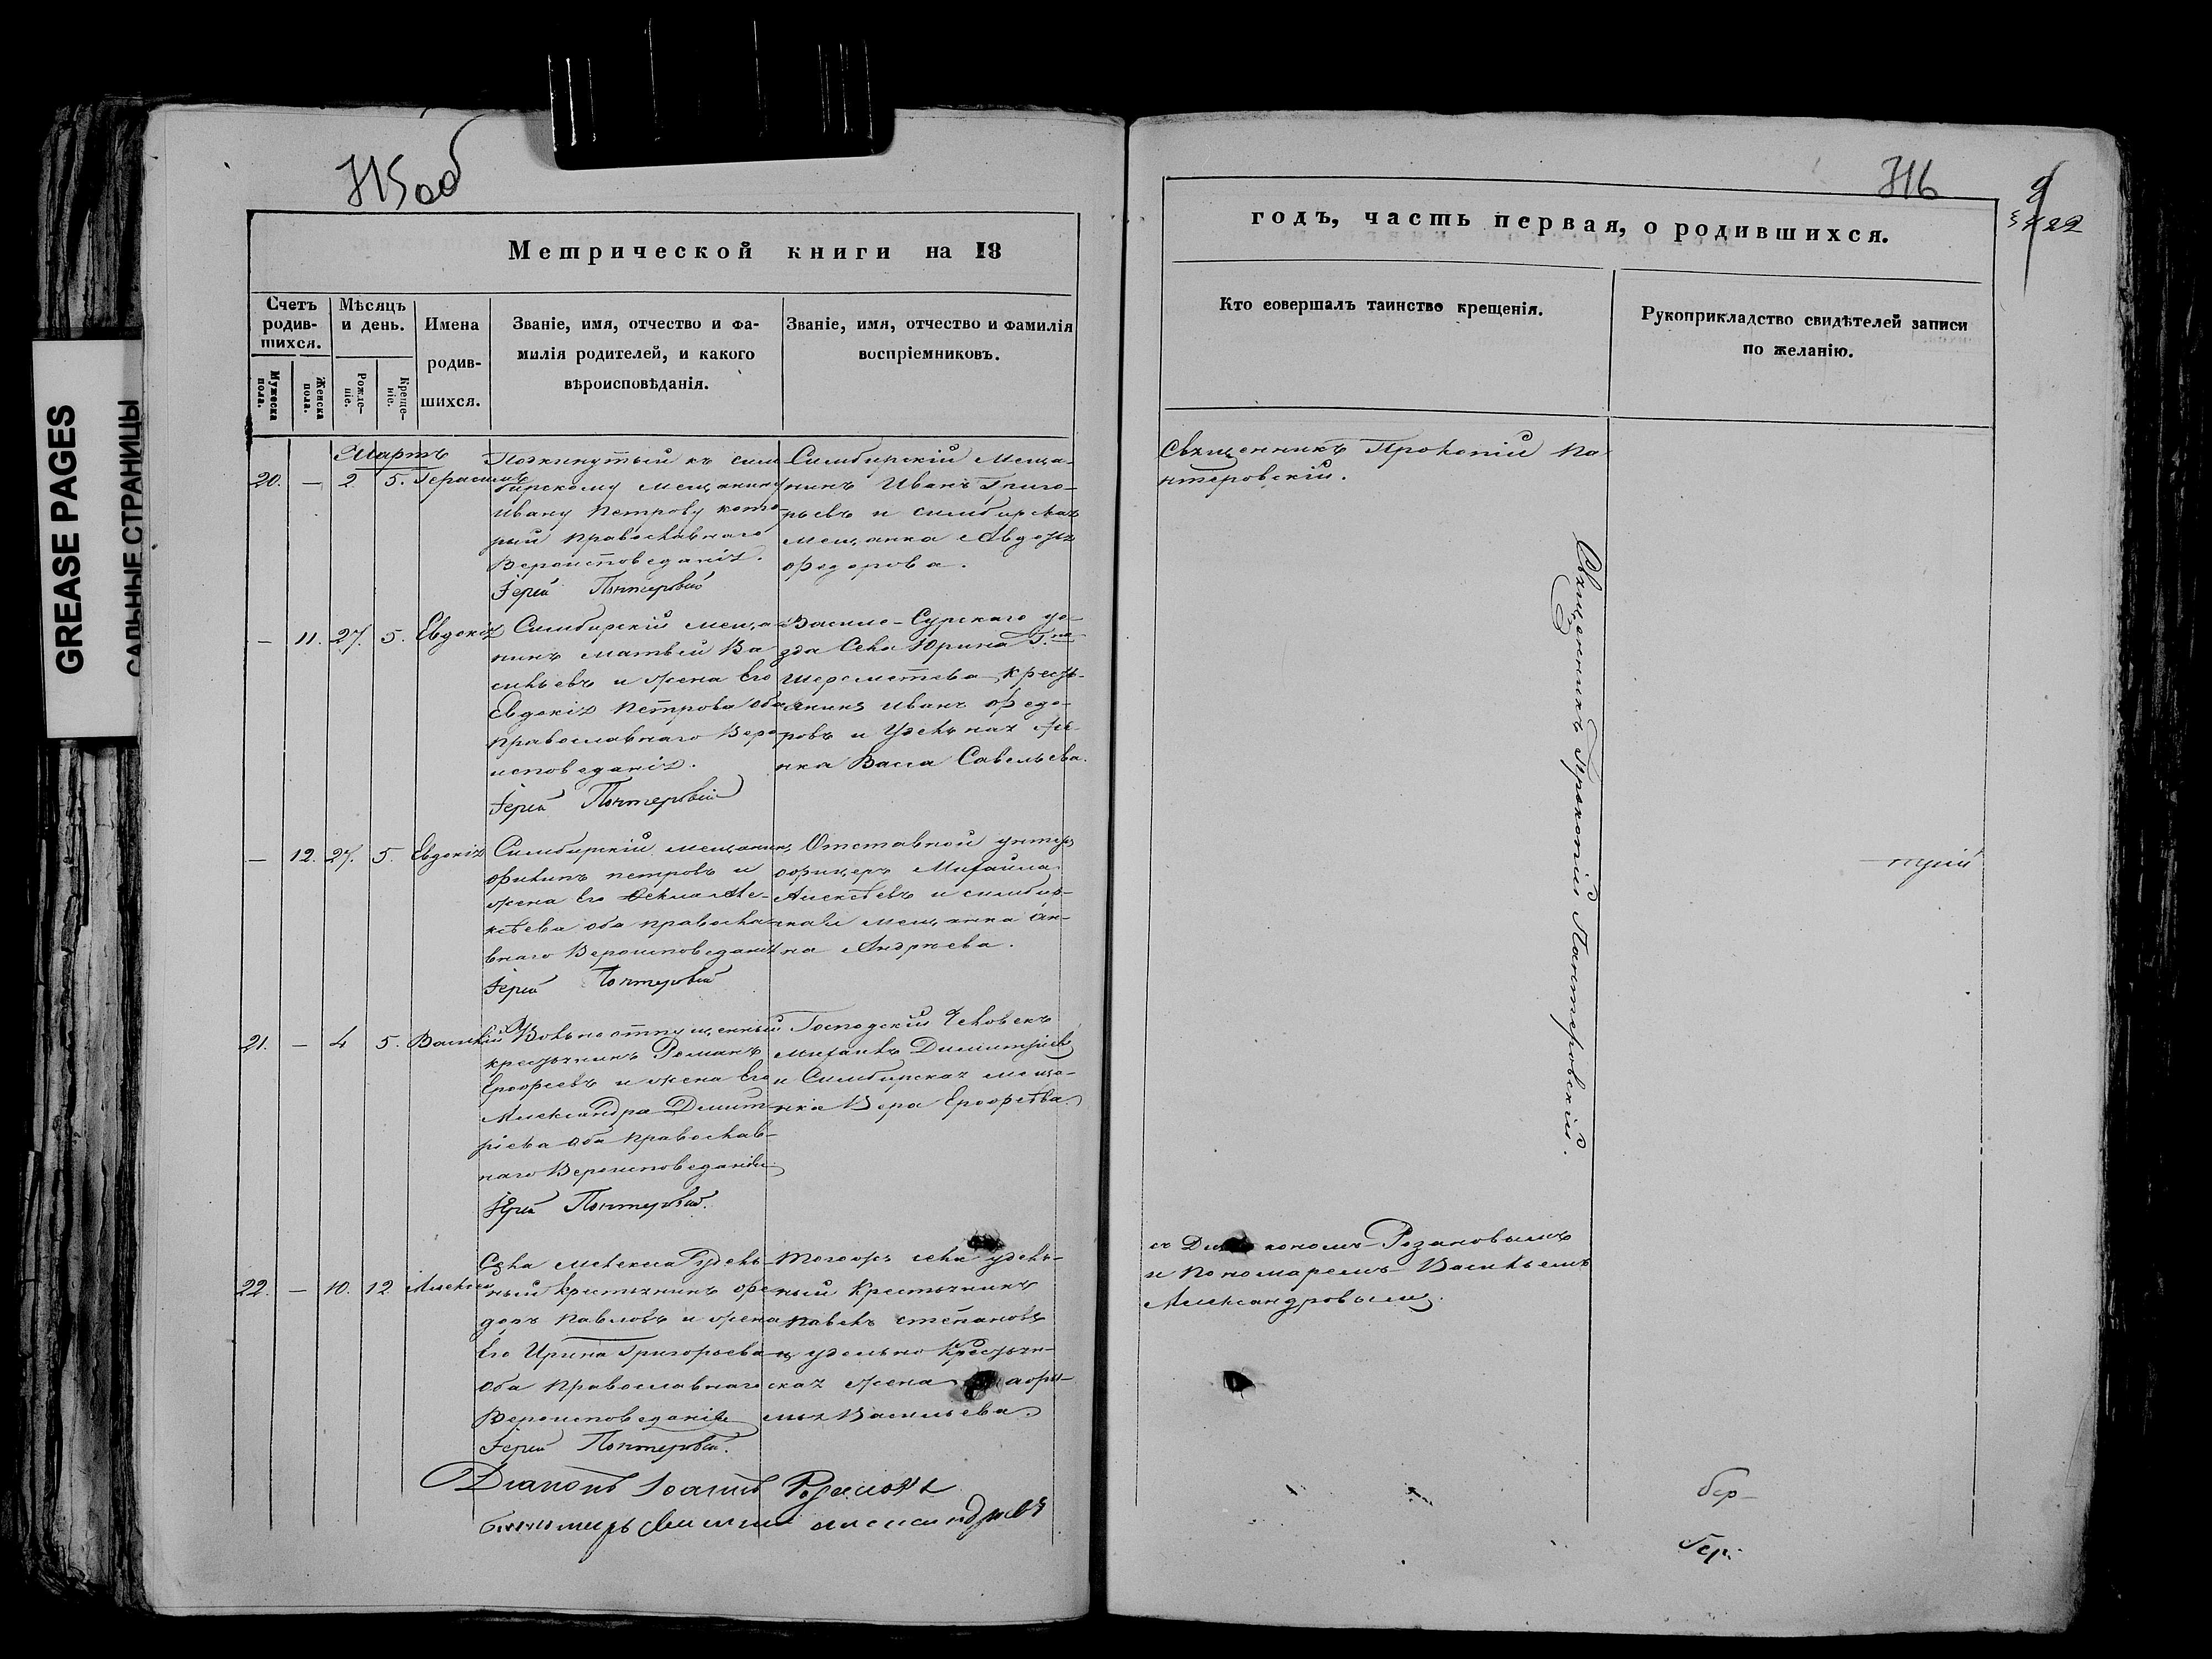 GREASE PAGES
САЛЬНЫЕ СТРАНИЦЫ
715 об
Метрической книги на 18
Счетъ родив-шихся.
Мѣсяцъ и день.
Имена родив-шихся.
Званіе, имя, отчество и фа-
милія родителей, и какого
вѣроисповѣданія.
Званіе, имя, отчество и фамилія
воспріемниковъ.
Мужеска пола.
Женска пола.
Рожде-ніе.
Креще-ніе.
Мартъ
20. — 2 5. Герасимъ
Подкинутый къ сим-
бирскому мещанину
Ивану Петрову кото-
рый православнаго
Вероисповеданія.
Іерей Пантеровскій
Симбирскій меща-
нинъ Иванъ Григо-
рьевъ и симбирская
мещанка Авдотья
Федорова.
— 11. 27. 5. Евдокія
Симбирскій меща-
нинъ Матвей Ва-
сильевъ и жена Его
Евдокія Петрова оба
православнаго Веро-
исповеданія.
Іерей Пантеровскій
Васило-Сурскаго уе-
зда Села Юрина Г.на
Шереметева кресть-
янинъ Иванъ Федо-
ровъ и Удельная
Васса Савельева.
— 12. 27. 5. Евдокія
Симбирскій мещанинъ
Филипъ Петровъ и
жена Его Фекла Але-
ксѣева оба правосла-
внаго Вероисповеданія
Іерей Пантеровскій
Отставной унтеръ
офицеръ Михайла
Алексѣевъ и симбир-
ская мещанка Ан-
на Андреева.
21. — 4 5. Василій
Вольноотпущенный
крестьянинъ Романъ
Ерофеевъ и жена Его
Александра Димит-
ріева оба православ-
наго Вероисповеданія
Іерей Пантеровскій.
Господскій Человекъ
Михаилъ Димитріевъ
и Симбирская меща-
нка Вера Ерофѣева.
22. — 10. 12 Алексей
Села удель-
ный крестьянинъ Фе-
доръ Павловъ и жена
Его Ирина Григорьева
оба православнаго
Вероисповеданія
Іерей Пантеровскій.
Тогожъ села удель-
ный крестьянинъ
Павелъ Степановъ
и удельно крестьян-
ская жена
Васильева.
Діаконъ Іоаннъ Розановъ
716
годъ, часть первая, о родившихся.
Кто совершалъ таинство крещенія.
Рукоприкладство свидѣтелей записи
по желанію.
Священникъ Прокопій Па-
нтеровскій.
Священникъ Прокопій Пантеровскій.
съ Діакономъ Розановымъ
и Пономаремъ Васильемъ
Александровымъ.